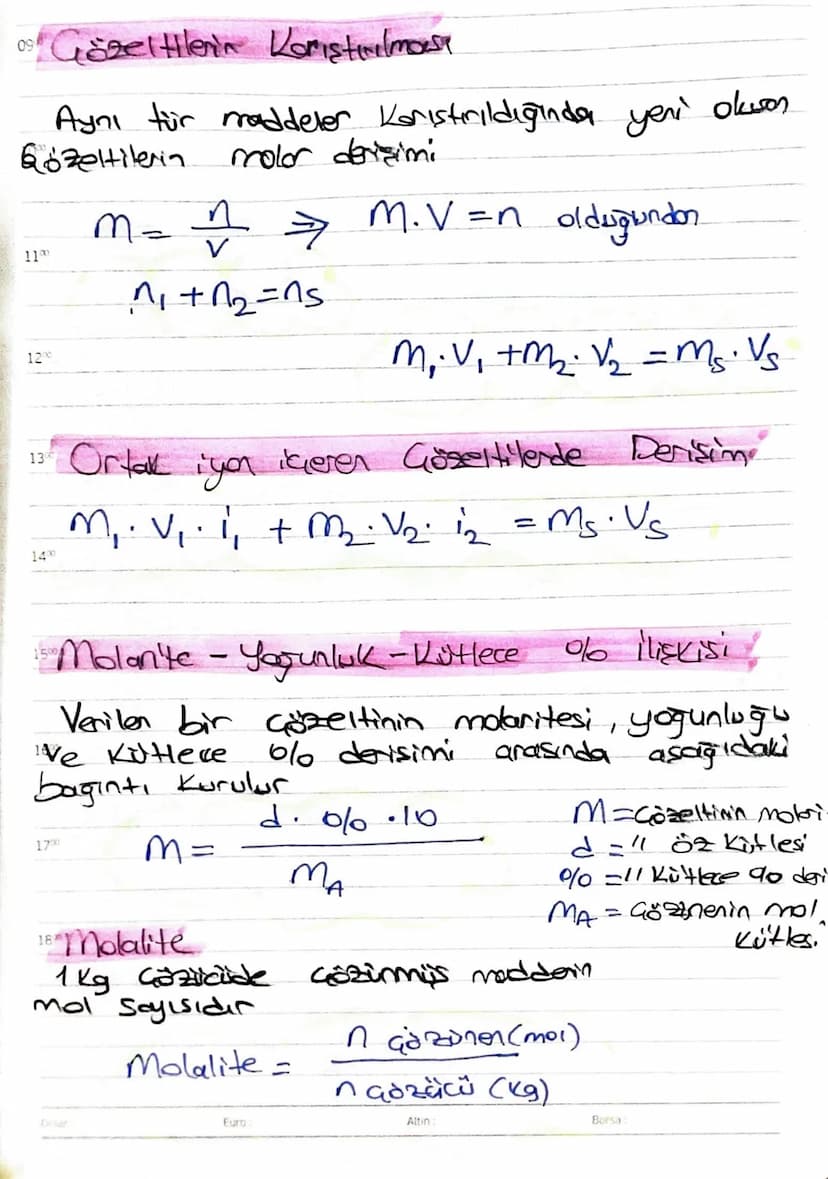 09⁰⁰ Çözeltilerin Karıştırılması
Aynı tür maddeler Karıştırıldığında yeni oluşan
Çözeltilerin molar derişimi
m = n/v ⇒ M.V = n olduğundan
11⁰⁰
n₁ + n₂ = ns
12⁰⁰ m₁.V₁ + m₂.V₂ = ms.Vs
13⁰⁰ Ortak iyon içeren Çözeltilerde Derişim
m₁.V₁.i₁ + m₂.V₂.i₂ = ms.Vs
14⁰⁰
15⁰⁰ Molarite - Yoğunluk - Kütlece % İlişkisi
Verilen bir çözeltinin molaritesi, yoğunluğu
ve Kütlece % derişimi arasında aşağıdaki
bağıntı Kurulur
m = d. % .10 / mA
17⁰⁰
M = Çözeltinin molari
d = " öz Kütlesi
% = " Kütlece % deri
MA = Çözünenin mol.
Kütles.
18⁰⁰ Molalite
1 Kg Çözücüde çözünmüş maddenin
mol sayısıdır
Molalite = n çözünen (mol) / n çözücü (kg)
Dolar: Euro: Altın: Borsa: